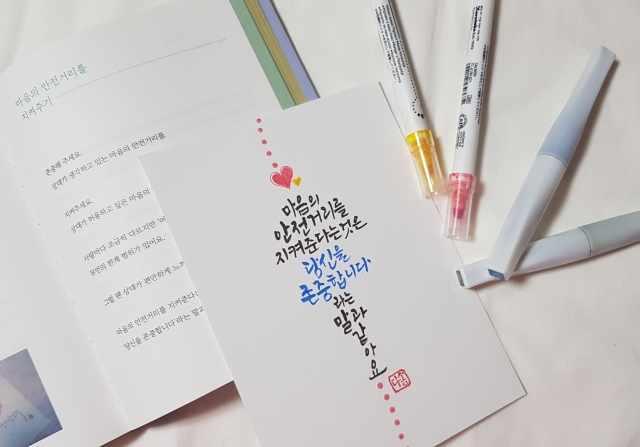 마음의 안전거리를
지켜주기
존중해 주세요.
상대가 생각하고 있는 마음의 안전거리를.
지켜주세요.
상대가 허용하고 싶은 마음의
사람마다 조금씩 다르지만
무언의 한계 범위가 있어요.
그럴 땐 상대가 편안하게
마음의 안전거리를 지켜준다
당신을 존중합니다'라는 말과
마음의
안전거리를
지켜준다는것은
당신을
존중합니다.
라는
말과
같
아
요